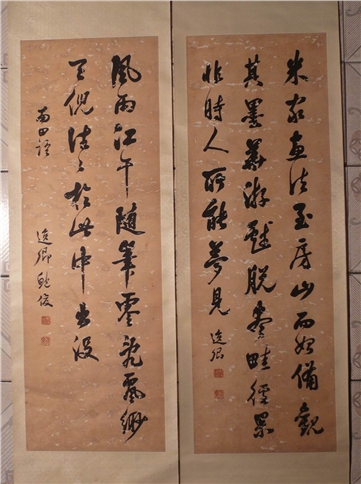 米家畫法至房山而始備觀
其墨華游戲脫盡畦徑果
非時人所能夢見 逸卿
風雨江干隨筆零亂飄緲
天倪往〻於此中出沒
南田語 逸卿鮑俊